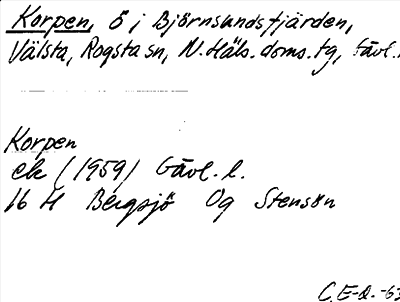 Korpen, ö i Björnsundsfjärden,
Välsta, Rogsta sn, N. Häls. doms. tg, Gävl. l.
Korpen
ek (1959) Gävl. l.
16 H Bergsjö Og Stensön
C.E-Q. -63